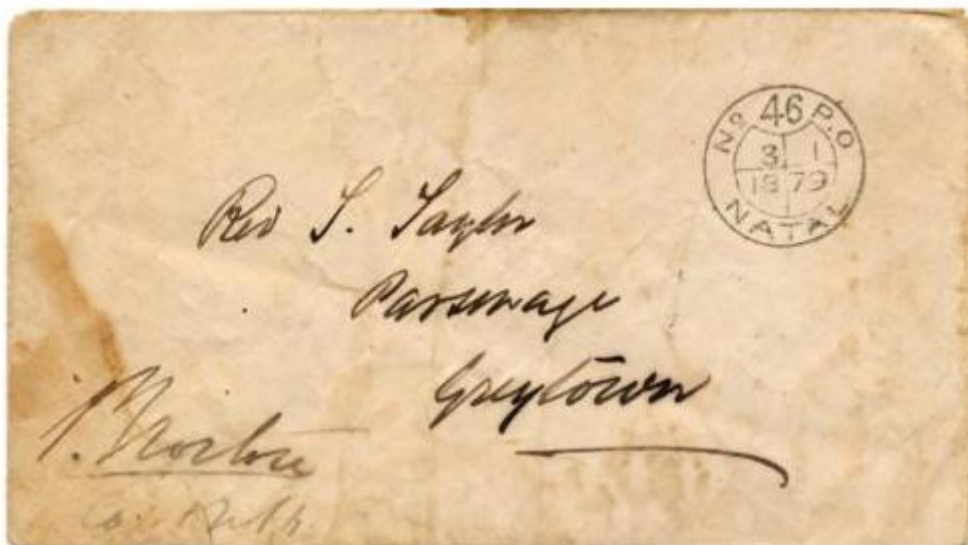 No 46 P.O
3 1
18 79
NATAL
Rev S. Taylor
Parsonage
Greytown